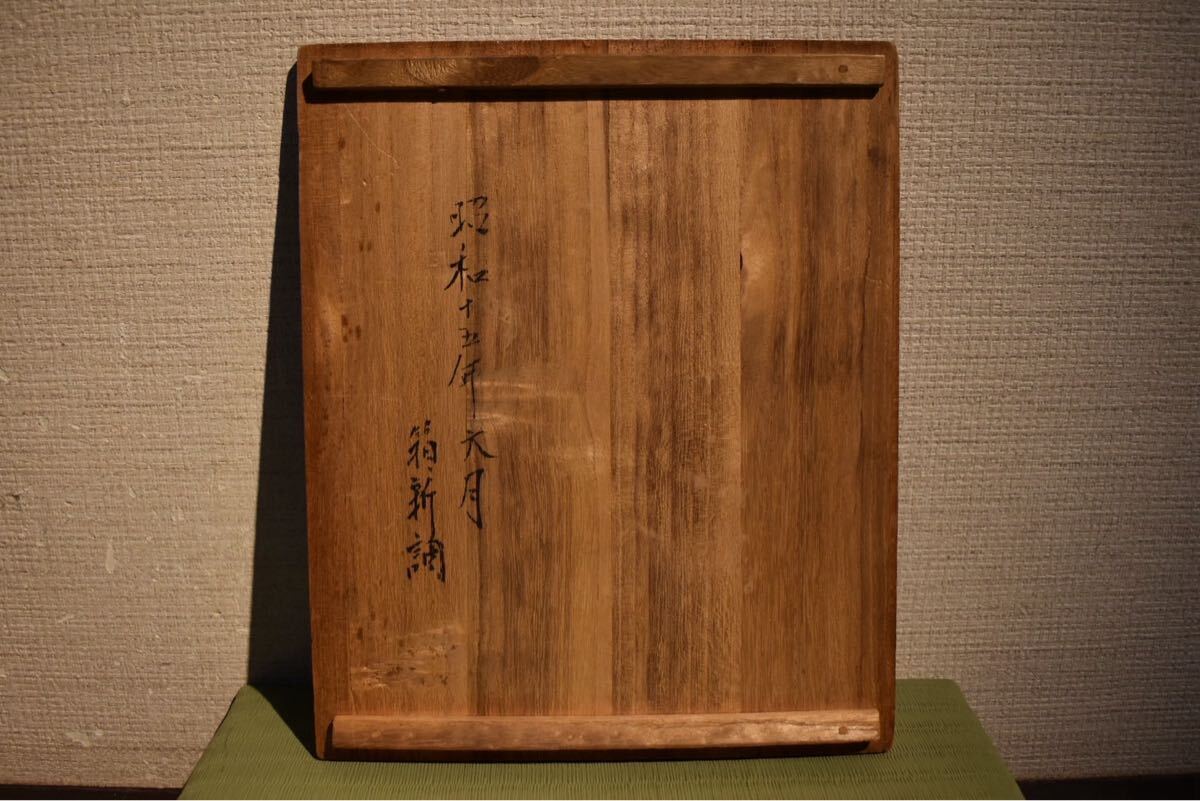 昭和十五年六月
箱新調